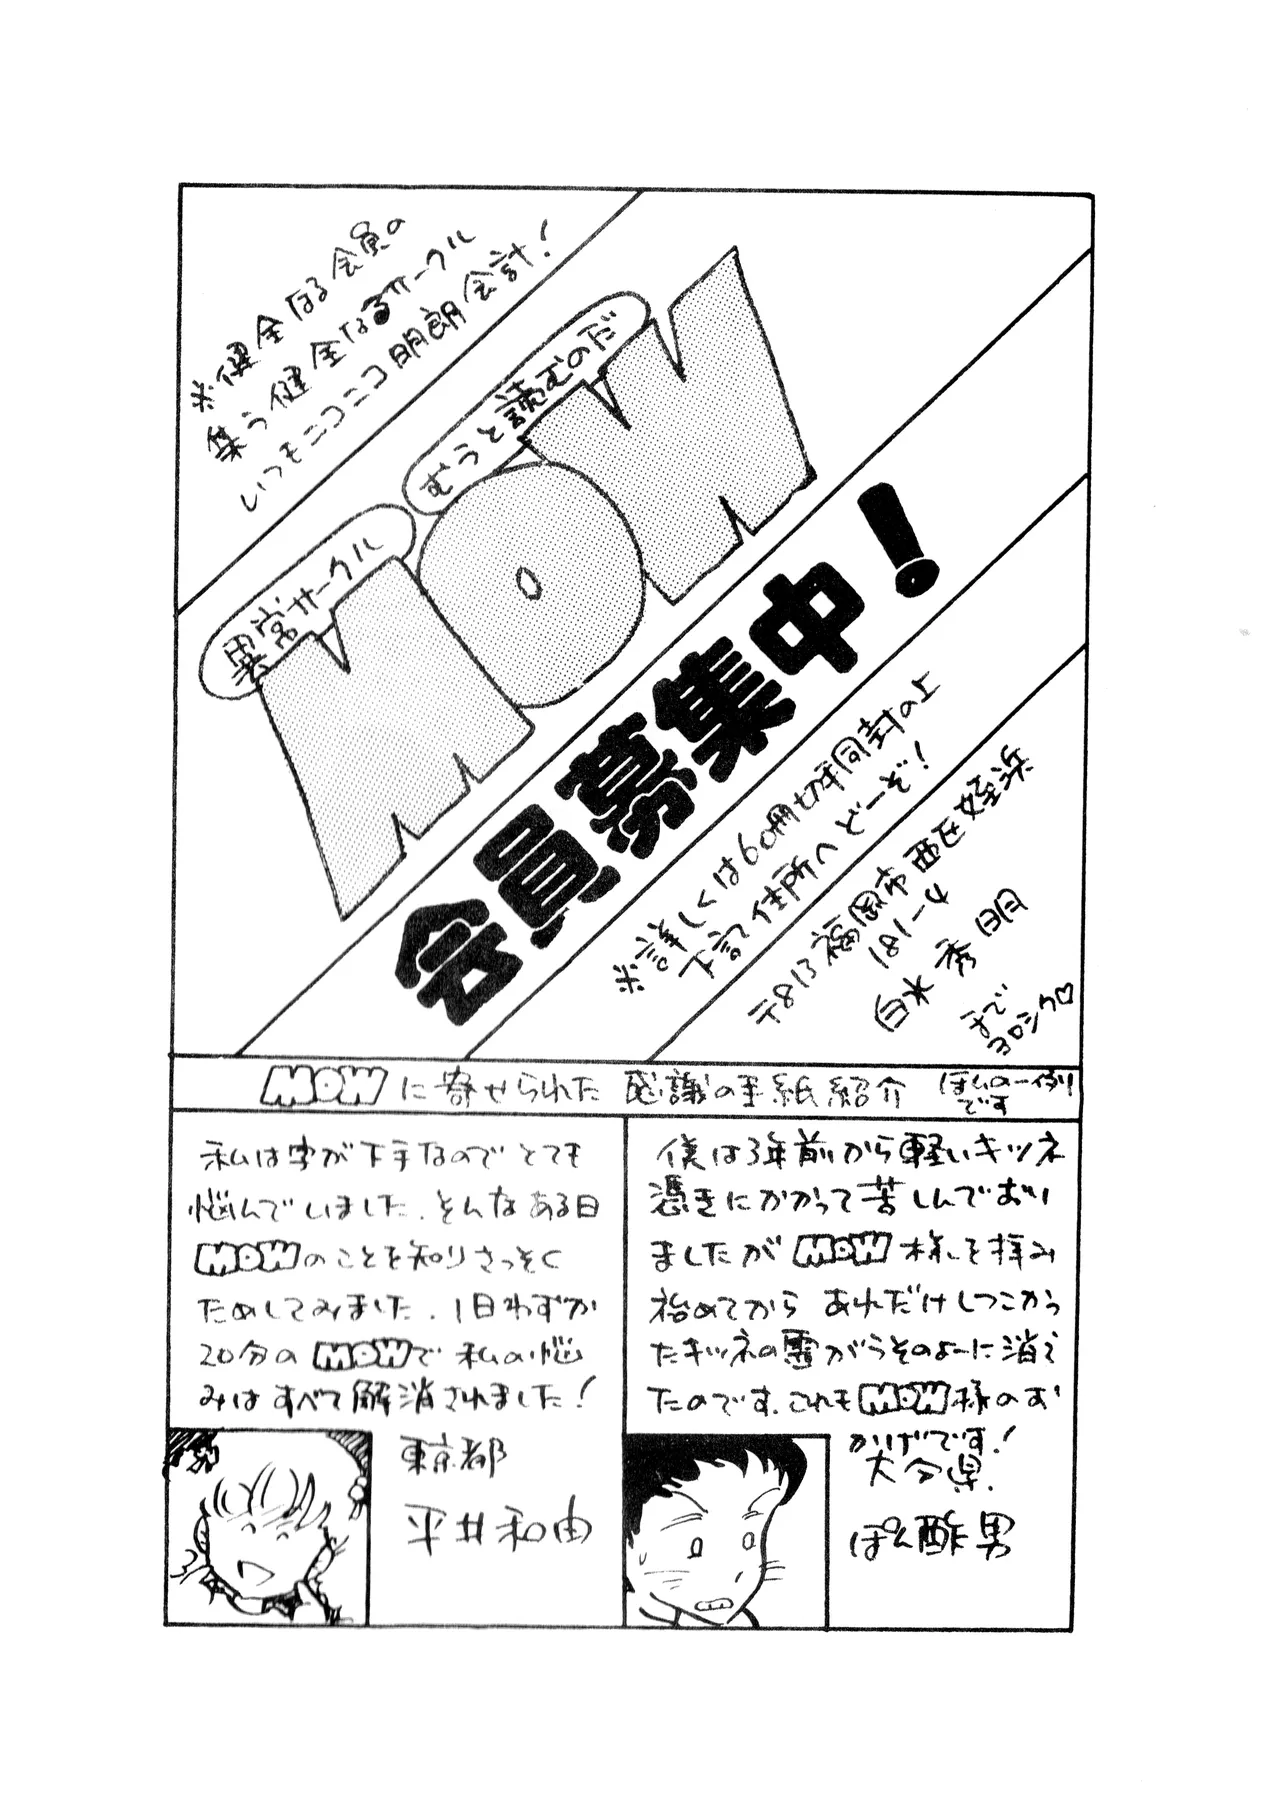 ※健全なる会員の
集う健全なるサークル
いつもニコニコ明朗会計！
異常サークル
むうと読むのだ
MOW
会員募集中！
※詳しくは60円切手同封の上
上記住所へどーぞ！
〒813福岡市西区姪浜
181-4
白水秀明
まで
ヨロシク♡
MOWに寄せられた感謝の手紙紹介 ほんの一例
です
私は字が下手なのでとても
悩んでいました.そんなある日
MOWのことを知りさっそく
ためしてみました.1日わずか
20分のMOWで私の悩
みはすべて解消されました！
東京都
平井和由
僕は3年前から軽いキツネ
憑きにかかって苦しんでおい
ましたがMOW様を拝み
始めてからあれだけしつこかっ
たキツネの霊がうそのよーに消え
たのです.これもMOW様のお
かげです！
大分県.
ぽん酢男